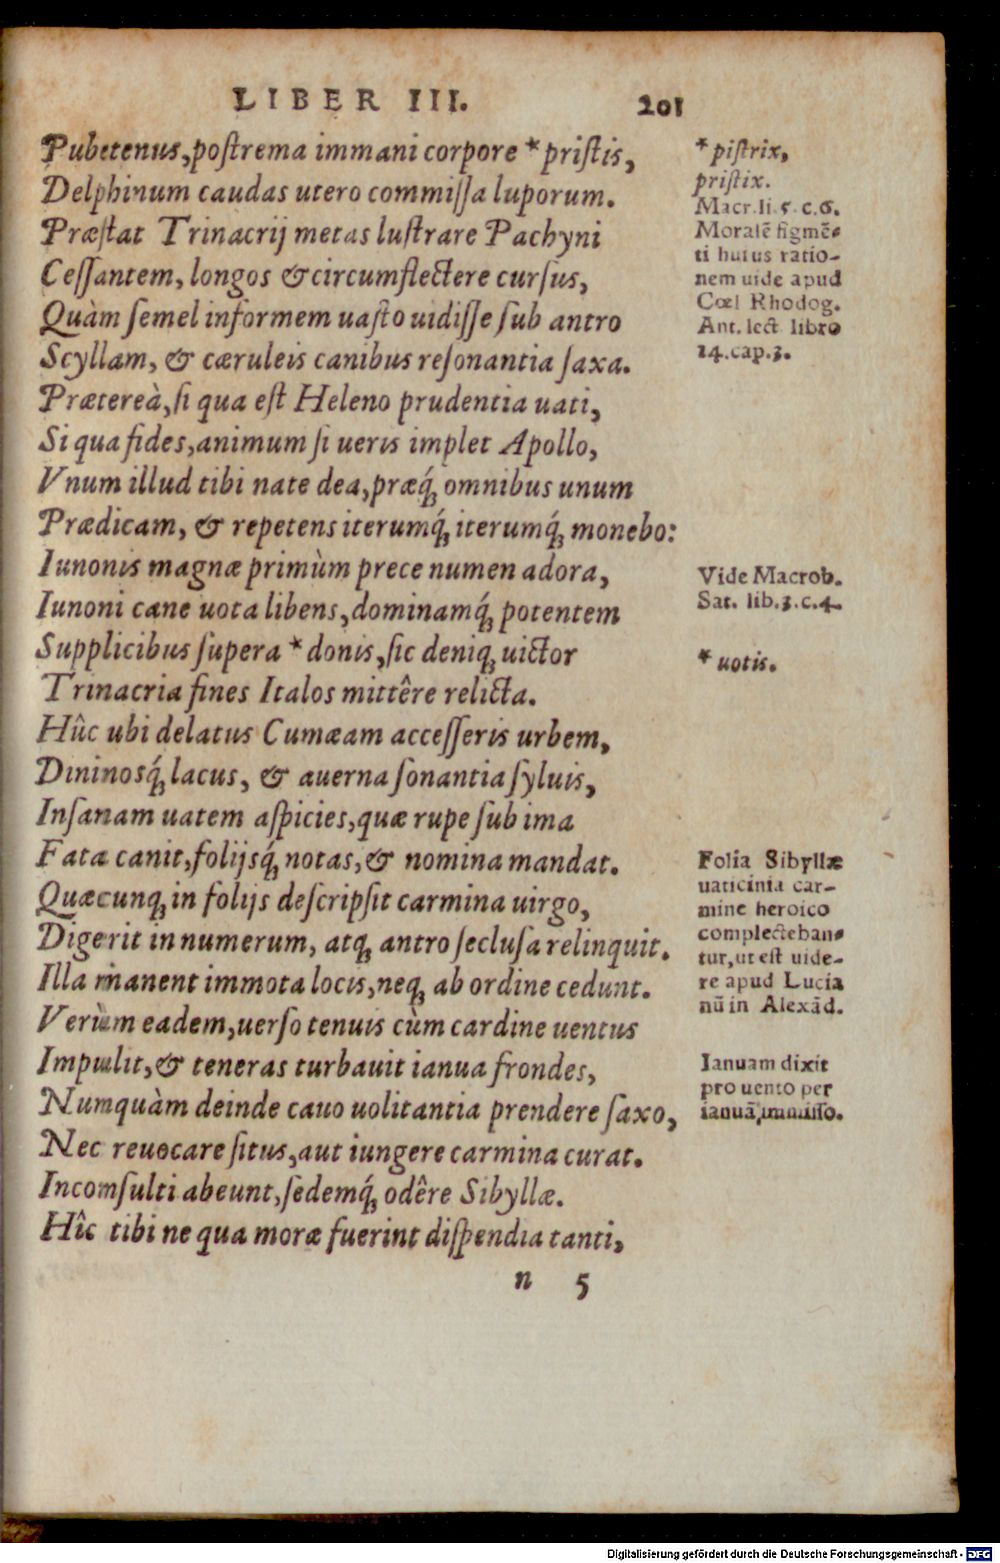 LIBER III. 201
Pubetenus, postrema immani corpore * pristis,
Delphinum caudas utero commissa luporum.
Præstat Trinacrij metas lustrare Pachyni
Cessantem, longos & circumflectere cursus,
Quàm semel informem uasto uidisse sub antro
Scyllam, & cæruleis canibus resonantia saxa.
Prætereà, si qua est Heleno prudentia uati,
Si qua fides, animum si ueris implet Apollo,
Vnum illud tibi nate dea, præq́; omnibus unum
Prædicam, & repetens iterumq́; iterumq́; monebo:
Iunonis magnæ primùm prece numen adora,
Iunoni cane uota libens, dominamq́; potentem
Supplicibus supera * donis, sic deniq; uictor
Trinacria fines Italos mittêre relicta.
Hûc ubi delatus Cumæam accesseris urbem,
Dininosq́; lacus, & auerna sonantia syluis,
Insanam uatem aspicies, quæ rupe sub ima
Fata canit, folijsq́; notas, & nomina mandat.
Quæcunq; in folijs descripsit carmina uirgo,
Digerit in numerum, atq; antro seclusa relinquit.
Illa manent immota locis, neq; ab ordine cedunt.
Verùm eadem, uerso tenuis cùm cardine uentus
Impulit, & teneras turbauit ianua frondes,
Numquàm deinde cauo uolitantia prendere saxo,
Nec reuocare situs, aut iungere carmina curat.
Inconsulti abeunt, sedemq́; odêre Sibyllæ.
Hîc tibi ne qua moræ fuerint dispendia tanti,
n 5
* pistrix,
pristix.
Macr. li. 5. c. 6.
Moralẽ figmẽ-
ti huius ratio-
nem uide apud
Cœl Rhodog.
Ant. lect. libro
14. cap. 3.
Vide Macrob.
Sat. lib. 3. c. 4.
* uotis.
Folia Sibyllæ
uaticinia car-
mine heroico
complecteban-
tur, ut est uide-
re apud Lucia
nũ in Alexãd.
Ianuam dixit
pro uento per
ianuã, immisso.
Digitalisierung gefördert durch die Deutsche Forschungsgemeinschaft - DFG